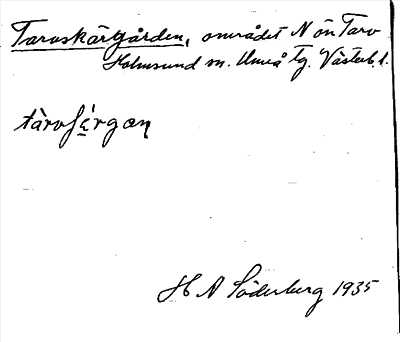 Tarvskärgården, området N ön Tarv
Holmsund sn. Umeå tg. Västerb. l.
tàrvʃärgαn
H A Söderberg 1935